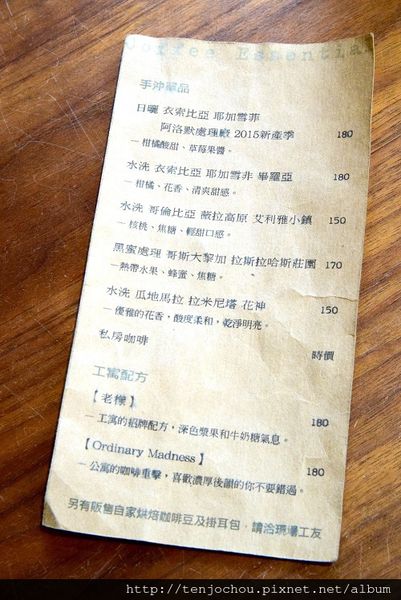 Coffee Essential
手沖單品
日曬 衣索比亞 耶加雪菲
阿洛默處理廠 2015新產季 180
－柑橘酸甜、草莓果醬。
水洗 衣索比亞 耶加雪菲 畢羅亞 180
－柑橘、花香、清爽甜感。
水洗 哥倫比亞 薇拉高原 艾利雅小鎮 150
－核桃、焦糖、輕甜口感。
黑蜜處理 哥斯大黎加 拉斯拉哈斯莊園 170
－熱帶水果、蜂蜜、焦糖。
水洗 瓜地馬拉 拉米尼塔 花神 150
－優雅的花香，酸度柔和，乾淨明亮。
私房咖啡 時價
工寓配方
【老樣】 180
－工寓的招牌配方，深色漿果和牛奶糖氣息。
【Ordinary Madness】 180
－公寓的咖啡重擊，喜歡濃厚後韻的你不要錯過。
另有販售自家烘焙咖啡豆及掛耳包，請洽現場工友
http://tenjochou.pixnet.net/album